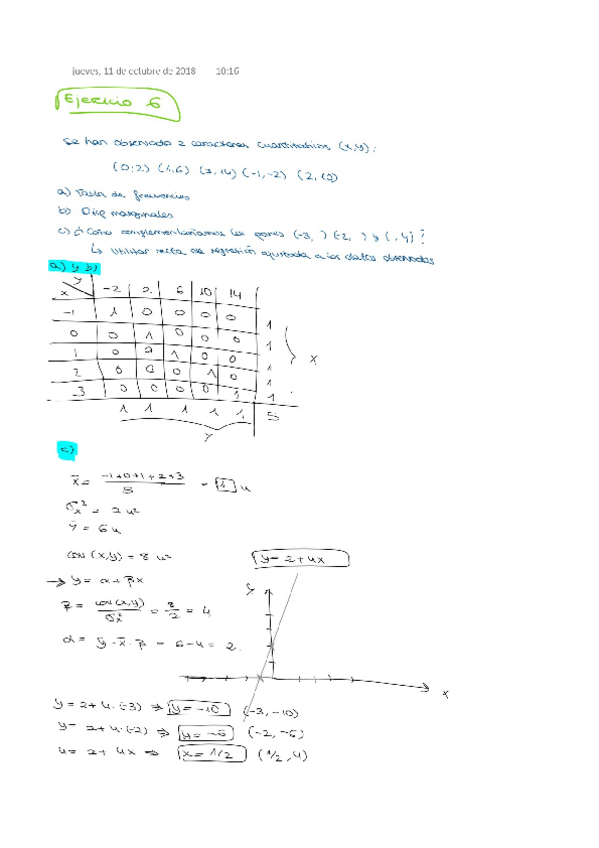 jueves, 11 de octubre de 2018 10:16
Ejercicio 6
Se han observado 2 caracteres cuantitativos (x,y):
(0,2) (1,6) (3,14) (-1,-2) (2,10)
a) Tabla de frecuencias
b) Disq marginales
c) ¿Cómo complementaríamos los pares (-3, ) (-2, ) y ( , 4)?
↳ Utilizar recta de regresión ajustada a los datos observados
a) y b)
y
x -2 2 6 10 14
-1 1 0 0 0 0 1
0 0 1 0 0 0 1
1 0 0 1 0 0 1 x
2 0 0 0 1 0 1
3 0 0 0 0 1 1
1 1 1 1 1 5
y
c)
x̄ = (-1+0+1+2+3)/5 = 1 u
σx² = 2 u²
ȳ = 6 u
cov (x,y) = 8 u²
y = 2 + 4x
→ y = α + βx
y
β = cov(x,y)/σx² = 8/2 = 4
α = ȳ - x̄ · β = 6 - 4 = 2
x
y = 2 + 4·(-3) ⇒ y = -10 (-3, -10)
y = 2 + 4·(-2) ⇒ y = -6 (-2, -6)
4 = 2 + 4x ⇒ x = 1/2 (1/2, 4)